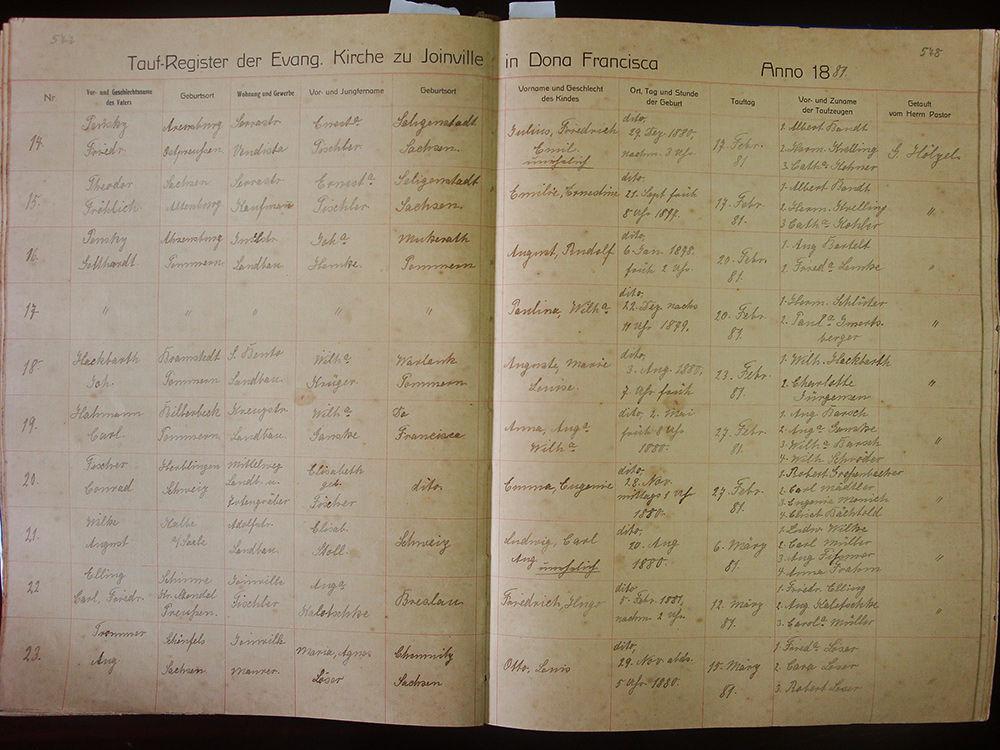 542
548
Tauf-Register der Evang. Kirche zu Joinville in Dona Francisca Anno 1881.
Nr. Vor- und Geschlechtsname des Vaters Geburtsort Wohnung und Gewerbe Vor- und Jungfername Geburtsort Vorname und Geschlecht des Kindes Ort, Tag und Stunde der Geburt Tauftag Vor- und Zuname der Taufzeugen Getauft vom Herrn Pastor
Pensky Serrastr. Ernesta Seligenstadt Julius, Friedrich dito, 1. Albert Bandt
14. Friedr. Ostpreußen Vendista Tischler Sachsen. Emil 29. Dez. 1880. 17. Febr. 2. Herm. Krelling G. Hölzel
unehelich nachm. 3 Uhr 81 3. Catha Kohner
Theodor Sachsen Serrastr. Ernesta Seligenstadt Emilie, Ernestine dito. 1. Albert Bandt
15. Fröhlich Altenburg Kaufmann Tischler Sachsen. 21. Sept. früh 17. Febr. 2. Herm. Krelling "
8 Uhr 81. 3 Catha Kohler
Pensky Joha August, Rudolf dito, 1. Aug Bartelt
16. Gotthardt Pommern Landbau. Pommern 6. Jan. 1878. 20. Febr. 2. Frieda Lemke "
früh 2 Uhr. 81.
dito, 1. Herm. Schlüter
17. " " " " " Paulina, Wilha 22. Dez. nachts 20. Febr. 2. Paula "
11 Uhr 1879. 81. berger
Hackbarth Bramstedt S. Bento Wilha Auguste, Marie dito, 1. Wilh. Hackbarth
18. Joh. Pommern Landbau. Krüger. Pommern Louise. 3. Aug. 1880, 23. Febr. 2. Charlotte "
7. Uhr früh 81. Jürgensen
Hahmann Billerbeck Kreuzstr. Wilha Anna, Auga dito, 2. Mai 1. Aug. Barsch
19. Carl. Pommern Landbau. Ganske Francisca Wilha früh 8 Uhr 27. Febr. 2. Auga Ganske "
1880. 81. 3. Wilha Barsch
4. Wilh. Schröder
Fischer Herblingen Mittelweg Elisabeth 1. Robert
20. Conrad Schweiz Landb. u. geb. dito. Emma, Eugenie dito, 28. Nov. 27. Febr. 2. Carl Mädller "
Fischer mittags 1 Uhr 81. 3. Eugenia
1880. 4. Elisab. Bächtold
Wilke Halle Elisab. Ludwig, Carl dito, 1. Ludw. Wilke
21. August a/Saale Landbau. Stoll. Schweiz Aug. unehelich 20. Aug 6. März 2. Carl Müller "
1880. 81. 3. Aug.
4. Anna
Elling Joinville Auga dito 1. Friedr. Elling
22 Carl. Friedr. Tischler Kalotschke Breslau. Friedrich, Hugo 5. Febr. 1881, 12. März 2. Aug Kalotschke "
Preußen. nachm. 2 Uhr. 81. 3. Carola Müller
Trommer Schönfels Joinville Maria, Agnes Chemnitz dito, 1. Frieda Löser
23. Aug Sachsen Maurer. Löser Sachsen Otto, Louis 29. Nov. abds. 15. März 2. Cara Löser
5 Uhr 1880. 81. 3. Robert Löser